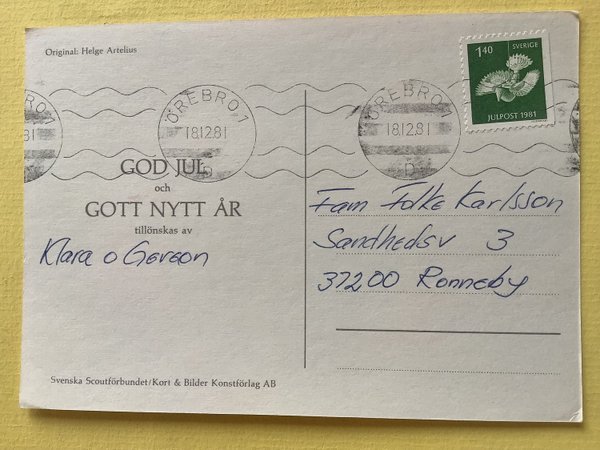 Original: Helge Artelius
1.40 SVERIGE
JULPOST 1981
ÖREBRO 1
181281
D
ÖREBRO 1
181281
D
81
GOD JUL
och
GOTT NYTT ÅR
tillönskas av
Klara o Gereon
Fam Folke Karlsson
Sandhedsv 3
37200 Ronneby
Svenska Scoutförbundet/Kort & Bilder Konstförlag AB